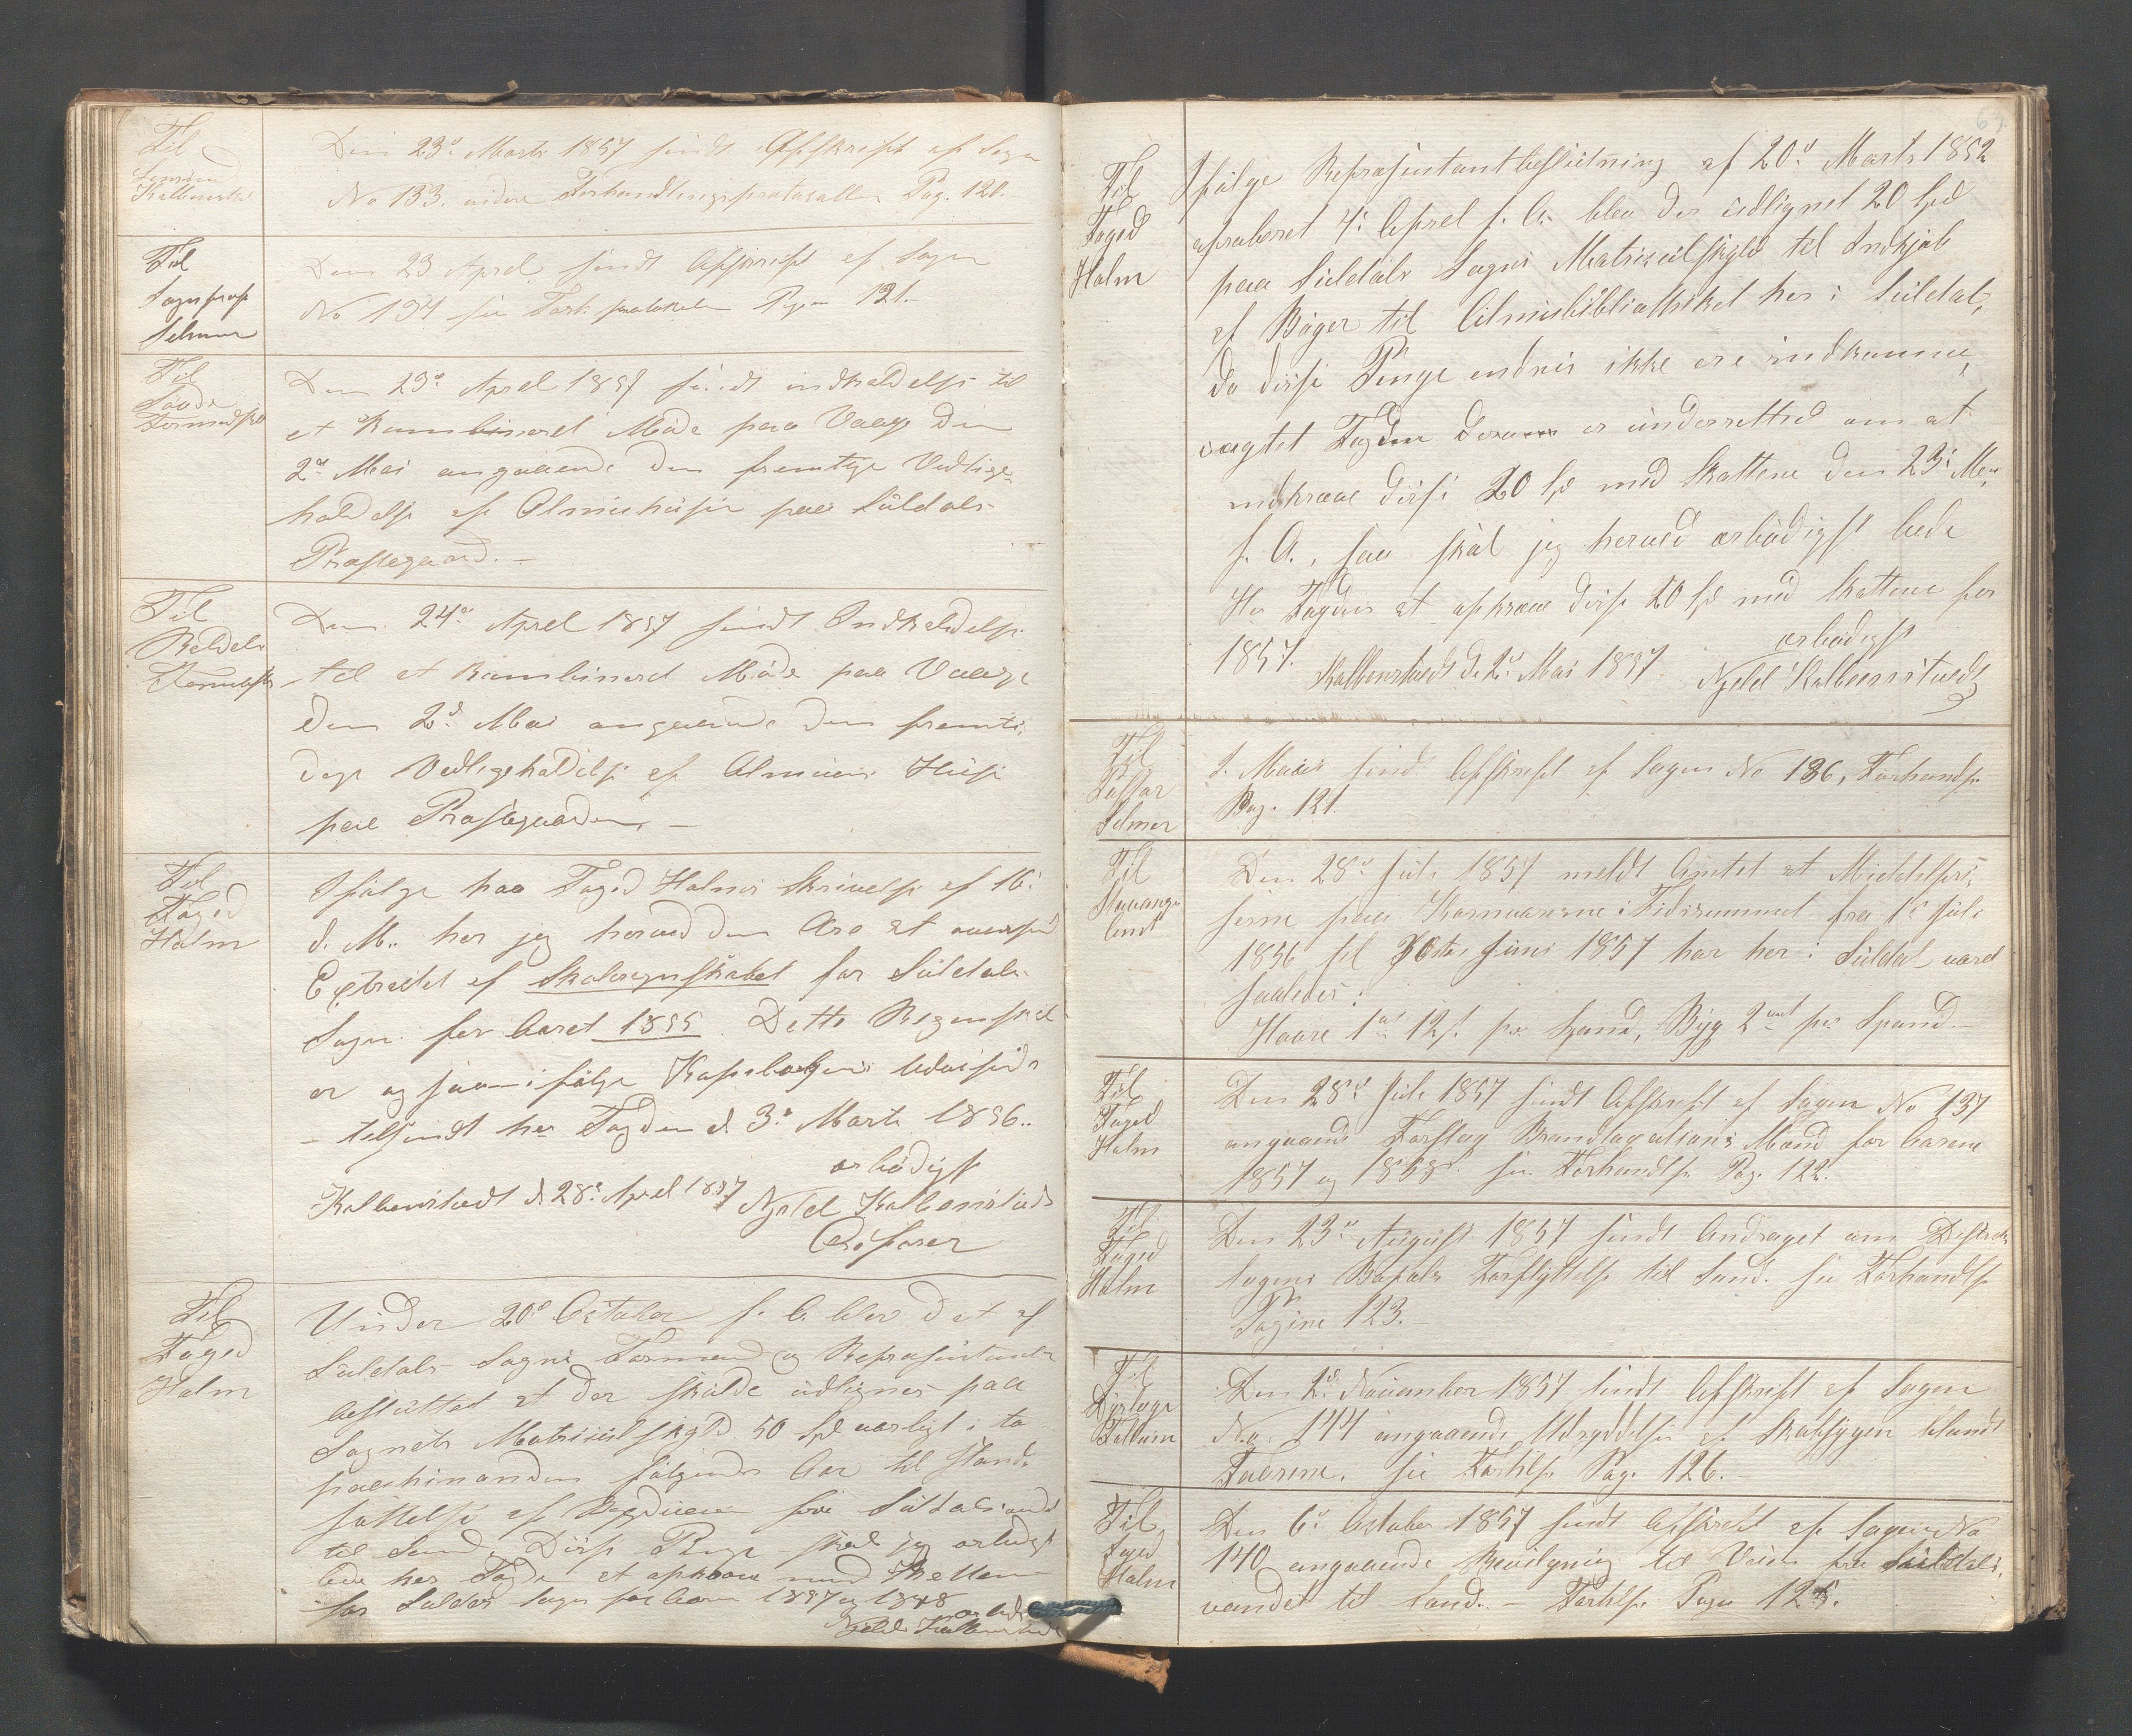 Til
Kolbenstvedt
Den 23de Marts 1857 sendt Afskrift af Sagen
No 133. videre Forhandlingsprotocollen Pag. 120.
Til
Sogneprest
Selmer
Den 23 April sendt Afskrift af Sagen
No 134 se Forh. protokolen Pagen 121.
Til
Saude
Formandskab
Den 23de April 1857 sendt indkaldelse til
et kombineret Møde paa Vaage den
2den Mai angaaende den fremtige Vedlige-
holdelse af Almuehuset paa Suldals
Præstegaard. —
Til
Formandskab
Den 24de April 1857 sendt Indkaldelse
til et kombineret Møde paa Vaage
den 2d Mai angaaende den fremti-
dige Vedligeholdelse af Almuens Huse
paa Præstegaarden. —
Til
Foged
Holm
Ifølge Foged Holms Skrivelse af 16:
d. M. har jeg herved den Ære at oversende
Extractet af Skoleregnskabet for Suldals
Sogn for Aaret 1855. Dette Regenskab
er og saa ifølge Kopibogens Udvisende
tilsendt her Fogden d 3: Marts 1856..
ærbødigst
Kolbenstvedt d. 28: April 1857 Njeld Kolbenstvedt
Ordfører
Til
Foged
Holm
Under 20d October f. A. blev det af
Suldals Sogns Formænd og Repræsentanter
besluttet at der skulde udlignes paa
Sognets Matriculskyld 50 Spd aarligt i to
paahinanden følgende Aar til Istand-
sættelse af Veien fra Suldalsvandet
til Sand. Disse Penge skal jeg ærbødigst
bede her Fogden at opkræve med Skatten
for Suldals Sogn for Aaren 1857 og 1858
ærbødigst
Njeld Kolbenstvedt
Til
Foged
Holm
Ifølge Repræsentantbeslutning af 20d Marts 1852
aproberet 4: April s. A. blev der udlignet 20 Spd
paa Suldals Sogns Matriculskyld til Indkjøb
af Bøger til Almuebibliotheket her i Suldal,
da disse Penge endnu ikke ere indkomne,
Fogden er underrettet om at
indkræve disse 20 Spd med Skattene den 23:
f. A., saa skal jeg herved ærbødigst bede
Hr Fogden at opkræve disse 20 Spd med Skattene for
1857.
ærbødigst
Kolbenstvedt d. 2: Mai 1857 Njeld Kolbenstvedt
Til
Pastor
Selmer
Mai sendt Afskrift af Sagen No 136, Forhandls.
Pag. 121.
Til
Stavanger
Amt
Den 28d Juli 1857 meldt Amtet at Middelpri-
serne paa Kornvarerne i Tidsrummet fra 1ste Juli
1856 til 30te Juni 1857 har her i Suldal været
saaledes:
Havre 1 ort 12 s. pr Spand, Byg 2 ort pr Spand. —
Til
Foged
Holm
Den 28d Juli 1857 sendt Afskrift af Sagen No 137
angaaende Forslag Mænd for Aarene
1857 og 1858. se Forhandls. Pag. 122.
Til
Foged
Holm
Den 23d August 1857 sendt Andraget om
Forflyttelse til Sand. se Forhandls.
Pagina 123. —
Til
Dyrlæge
Den 2d November 1857 sendt Afskrift af Sagen
No. 144 angaaende Udryddelse af Skabsygen blandt
Faarene. se Forhls. Pag. 126. —
Til
Foged
Holm
Den 6d October 1857 sendt Afskrift af Sagen No
140 angaaende Bevilgning til Veien fra Suldals-
vandet til Sand. — Forhls. Pagen 125.